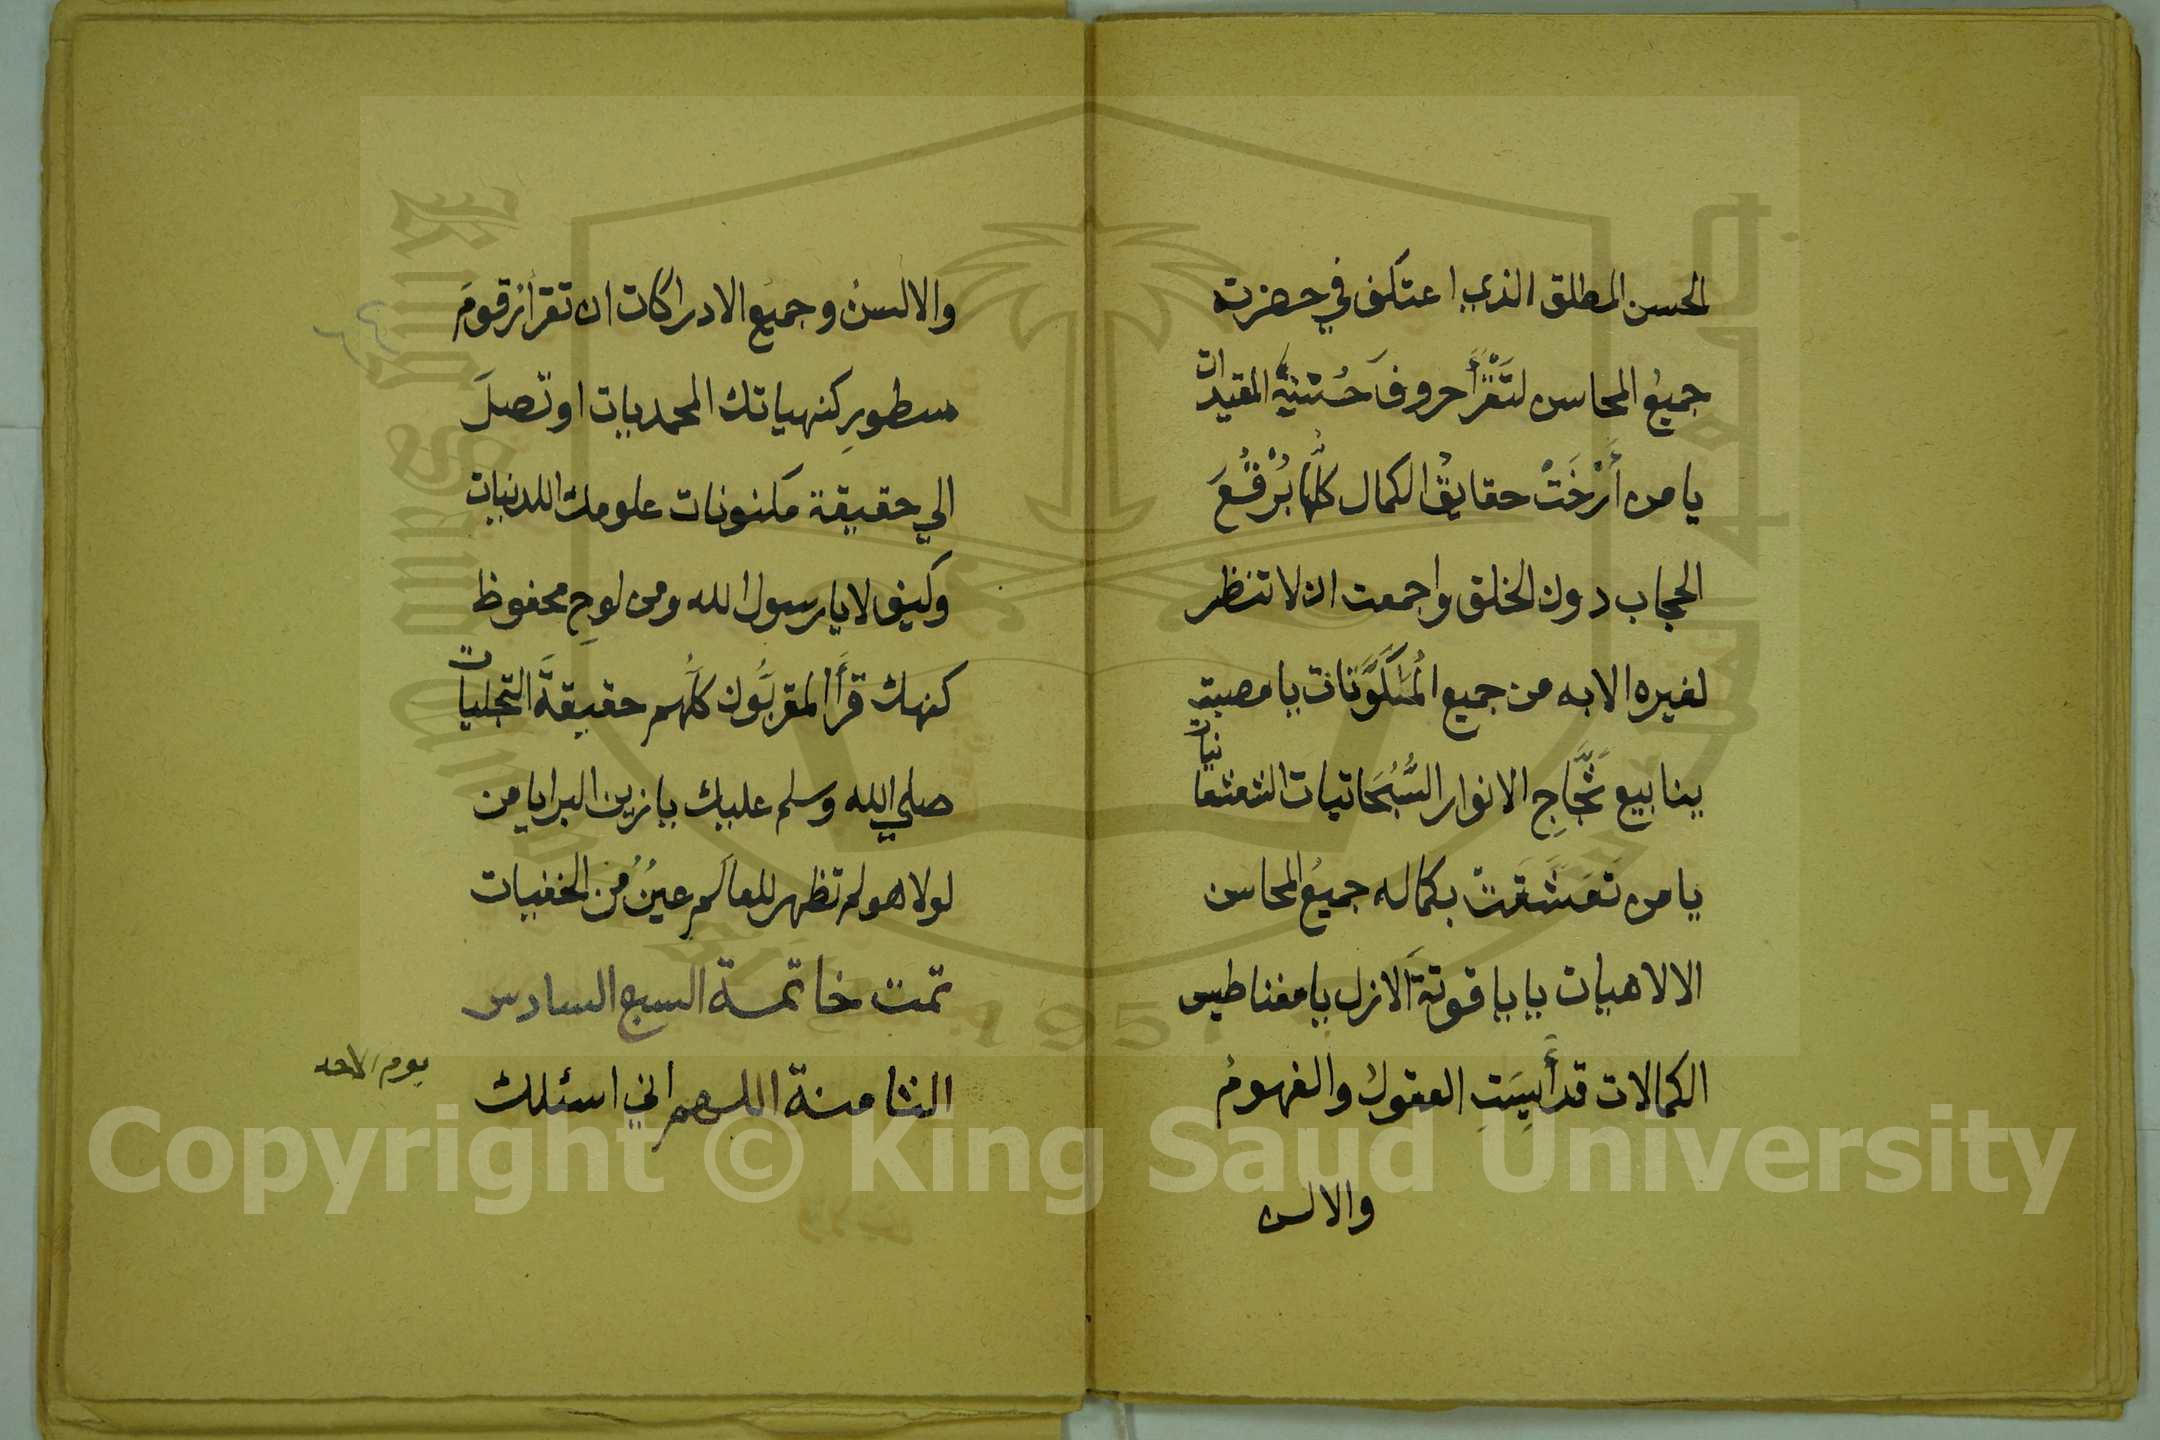 الحسن المطلق الذي اعتكف في حضرته
جميعُ المحاسن لتَقْرَأَ حروفَ حُسْنيةِ المقيدات
يا من أَرْخَتْ حقايقُ الكمال كلُّها بُرْقُعَ
الحجاب دون الخلق واجمعت ان لا تنظر
لغيره الا به من جميع المُتَكَوَّنات يا مصبة
ينابيع ثَجَّاجِ الانوار السُّبُحَاتيات الشعشعانيات
يا من تَعَشَّقَتْ بكماله جميعُ المحاسن
الالاهيات يا ياقوتةَ الازل يا مغناطيس
الكمالات قد أَيِسَتِ العقولُ والفهومُ
والالسن
والالسنُ وجميعُ الادراكات ان تقرأ رقومَ
سطورِ كنهياتك المحمديات او تَصلَ
الي حقيقة مكنونات علومك اللدنيات
وكيف لا يا رسول الله ومن لوحِ محفوظ
كنهك قرأَ المقربُون كلُّهم حقيقةَ التجليات
صلي الله وسلم عليك يا زين البرايا من
لولا هو لم تظهر للعالَم عينٌ من الخفيات
تمت خاتمة السبع السادس
الثامنة اللهم اني اسئلك
يوم الاحد
Copyright © King Saud University
King Saud University
1957